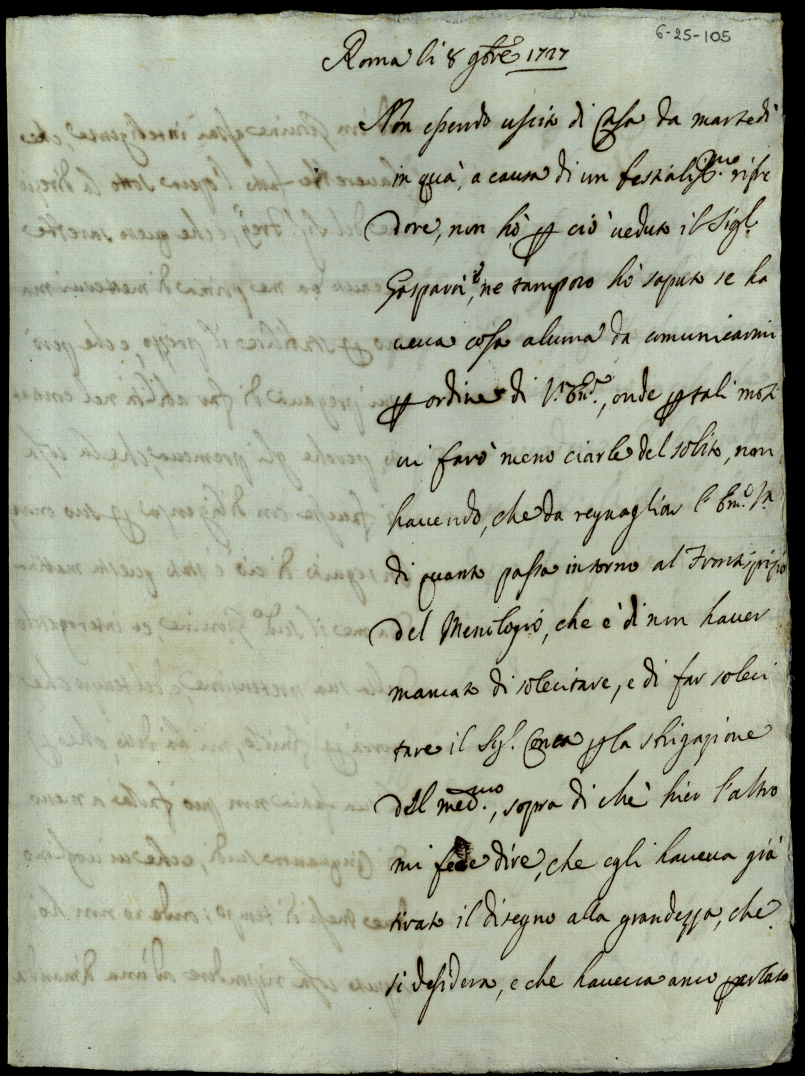 6-25-105
Roma li 8 9bre 1727
Non essendo uscito di Casa da martedì
in quà, a causa di un bestialissmo rifre
dore, non hò p ciò veduto il Sigr
Gasparri, ne tampoco hò saputo se ha
vea cosa alcuna da comunicarmi
p ordine di V. Em., onde p tali moti
vi farò meno ciarle del solito, non
havendo, che da raguagliar l'Em. V.
di quanto passa intorno al Frontispizio
del Menologio, che è di non haver
mancato di solecitare, e di far soleci
tare il Sigr Conca p la sbrigazione
del medmo, sopra di che hier l'altro
mi fece dire, che egli haveva già
tirato il disegno alla grandezza, che
si desidera, e che haveva anco parlato